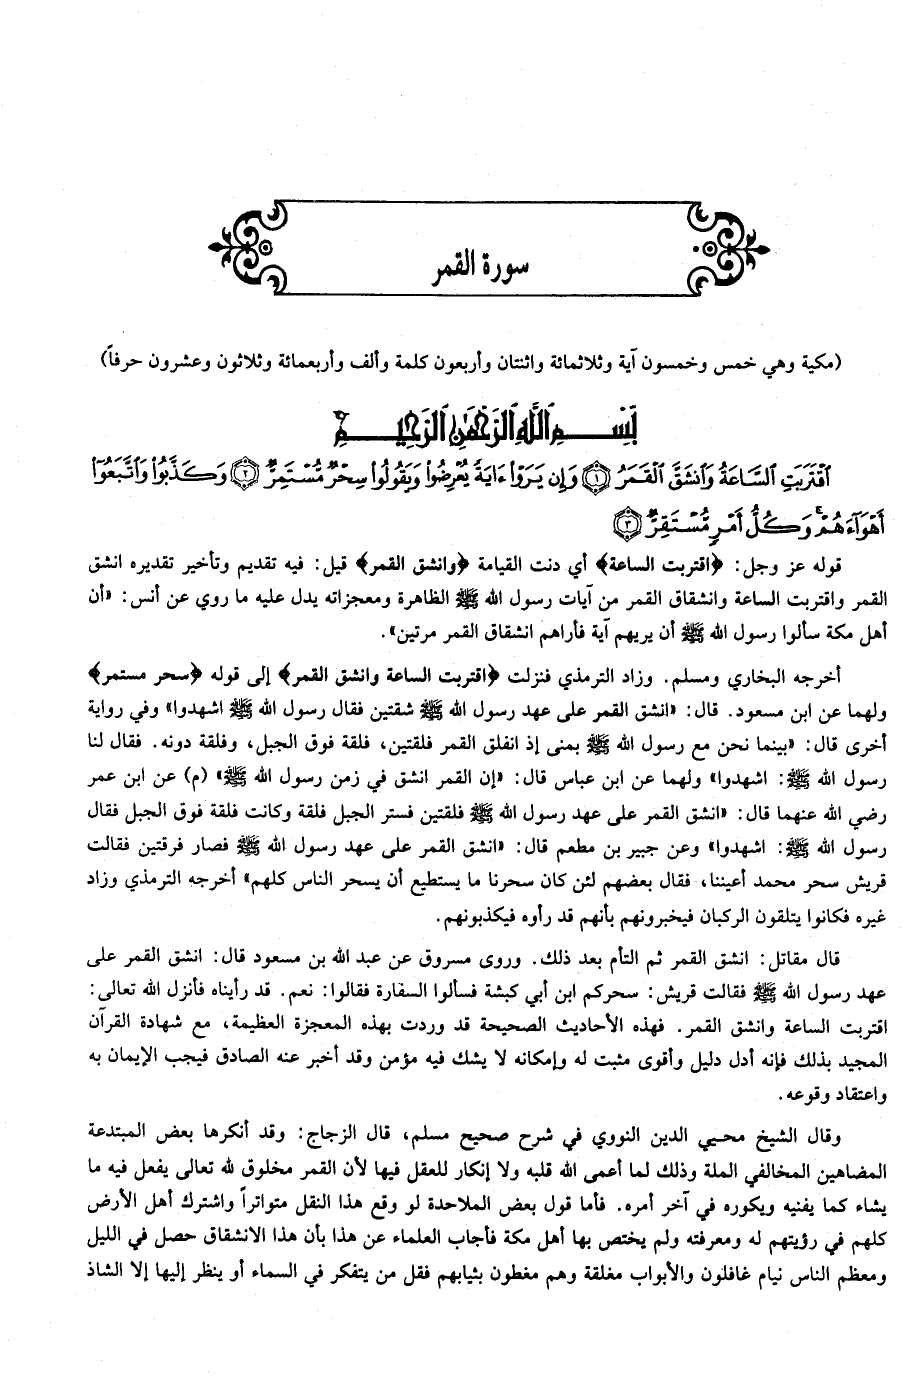 سورة القمر
(مكية وهي خمس وخمسون آية وثلاثمائة واثنتان وأربعون كلمة وألف وأربعمائة وثلاثون وعشرون حرفاً)
بِسْمِ اللَّهِ الرَّحْمَٰنِ الرَّحِيمِ
ٱقْتَرَبَتِ ٱلسَّاعَةُ وَٱنشَقَّ ٱلْقَمَرُ ﴿١﴾ وَإِن يَرَوْا۟ ءَايَةً يُعْرِضُوا۟ وَيَقُولُوا۟ سِحْرٌ مُّسْتَمِرٌّ ﴿٢﴾ وَكَذَّبُوا۟ وَٱتَّبَعُوٓا۟
أَهْوَآءَهُمْ ۚ وَكُلُّ أَمْرٍ مُّسْتَقِرٌّ ﴿٣﴾
قوله عز وجل: ﴿اقتربت الساعة﴾ أي دنت القيامة ﴿وانشق القمر﴾ قيل: فيه تقديم وتأخير تقديره انشق
القمر واقتربت الساعة وانشقاق القمر من آيات رسول الله ﷺ الظاهرة ومعجزاته يدل عليه ما روي عن أنس: «أن
أهل مكة سألوا رسول الله ﷺ أن يريهم آية فأراهم انشقاق القمر مرتين».
أخرجه البخاري ومسلم. وزاد الترمذي فنزلت ﴿اقتربت الساعة وانشق القمر﴾ إلى قوله ﴿سحر مستمر﴾
ولهما عن ابن مسعود. قال: «انشق القمر على عهد رسول الله ﷺ شقتين فقال رسول الله ﷺ اشهدوا» وفي رواية
أخرى قال: «بينما نحن مع رسول الله ﷺ بمنى إذ انفلق القمر فلقتين، فلقة فوق الجبل، وفلقة دونه. فقال لنا
رسول الله ﷺ: اشهدوا» ولهما عن ابن عباس قال: «إن القمر انشق في زمن رسول الله ﷺ» (م) عن ابن عمر
رضي الله عنهما قال: «انشق القمر على عهد رسول الله ﷺ فلقتين فستر الجبل فلقة وكانت فلقة فوق الجبل فقال
رسول الله ﷺ: اشهدوا» وعن جبير بن مطعم قال: «انشق القمر على عهد رسول الله ﷺ فصار فرقتين فقالت
قريش سحر محمد أعيننا، فقال بعضهم لئن كان سحرنا ما يستطيع أن يسحر الناس كلهم» أخرجه الترمذي وزاد
غيره فكانوا يتلقون الركبان فيخبرونهم بأنهم قد رأوه فيكذبونهم.
قال مقاتل: انشق القمر ثم التأم بعد ذلك. وروى مسروق عن عبد الله بن مسعود قال: انشق القمر على
عهد رسول الله ﷺ فقالت قريش: سحركم ابن أبي كبشة فسألوا السفارة فقالوا: نعم. قد رأيناه فأنزل الله تعالى:
اقتربت الساعة وانشق القمر. فهذه الأحاديث الصحيحة قد وردت بهذه المعجزة العظيمة، مع شهادة القرآن
المجيد بذلك فإنه أدل دليل وأقوى مثبت له وإمكانه لا يشك فيه مؤمن وقد أخبر عنه الصادق فيجب الإيمان به
واعتقاد وقوعه.
وقال الشيخ محيي الدين النووي في شرح صحيح مسلم، قال الزجاج: وقد أنكرها بعض المبتدعة
المضاهين المخالفي الملة وذلك لما أعمى الله قلبه ولا إنكار للعقل فيها لأن القمر مخلوق لله تعالى يفعل فيه ما
يشاء كما يفنيه ويكوره في آخر أمره. فأما قول بعض الملاحدة لو وقع هذا النقل متواتراً واشترك أهل الأرض
كلهم في رؤيتهم له ومعرفته ولم يختص بها أهل مكة فأجاب العلماء عن هذا بأن هذا الانشقاق حصل في الليل
ومعظم الناس نيام غافلون والأبواب مغلقة وهم مغطون بثيابهم فقل من يتفكر في السماء أو ينظر إليها إلا الشاذ